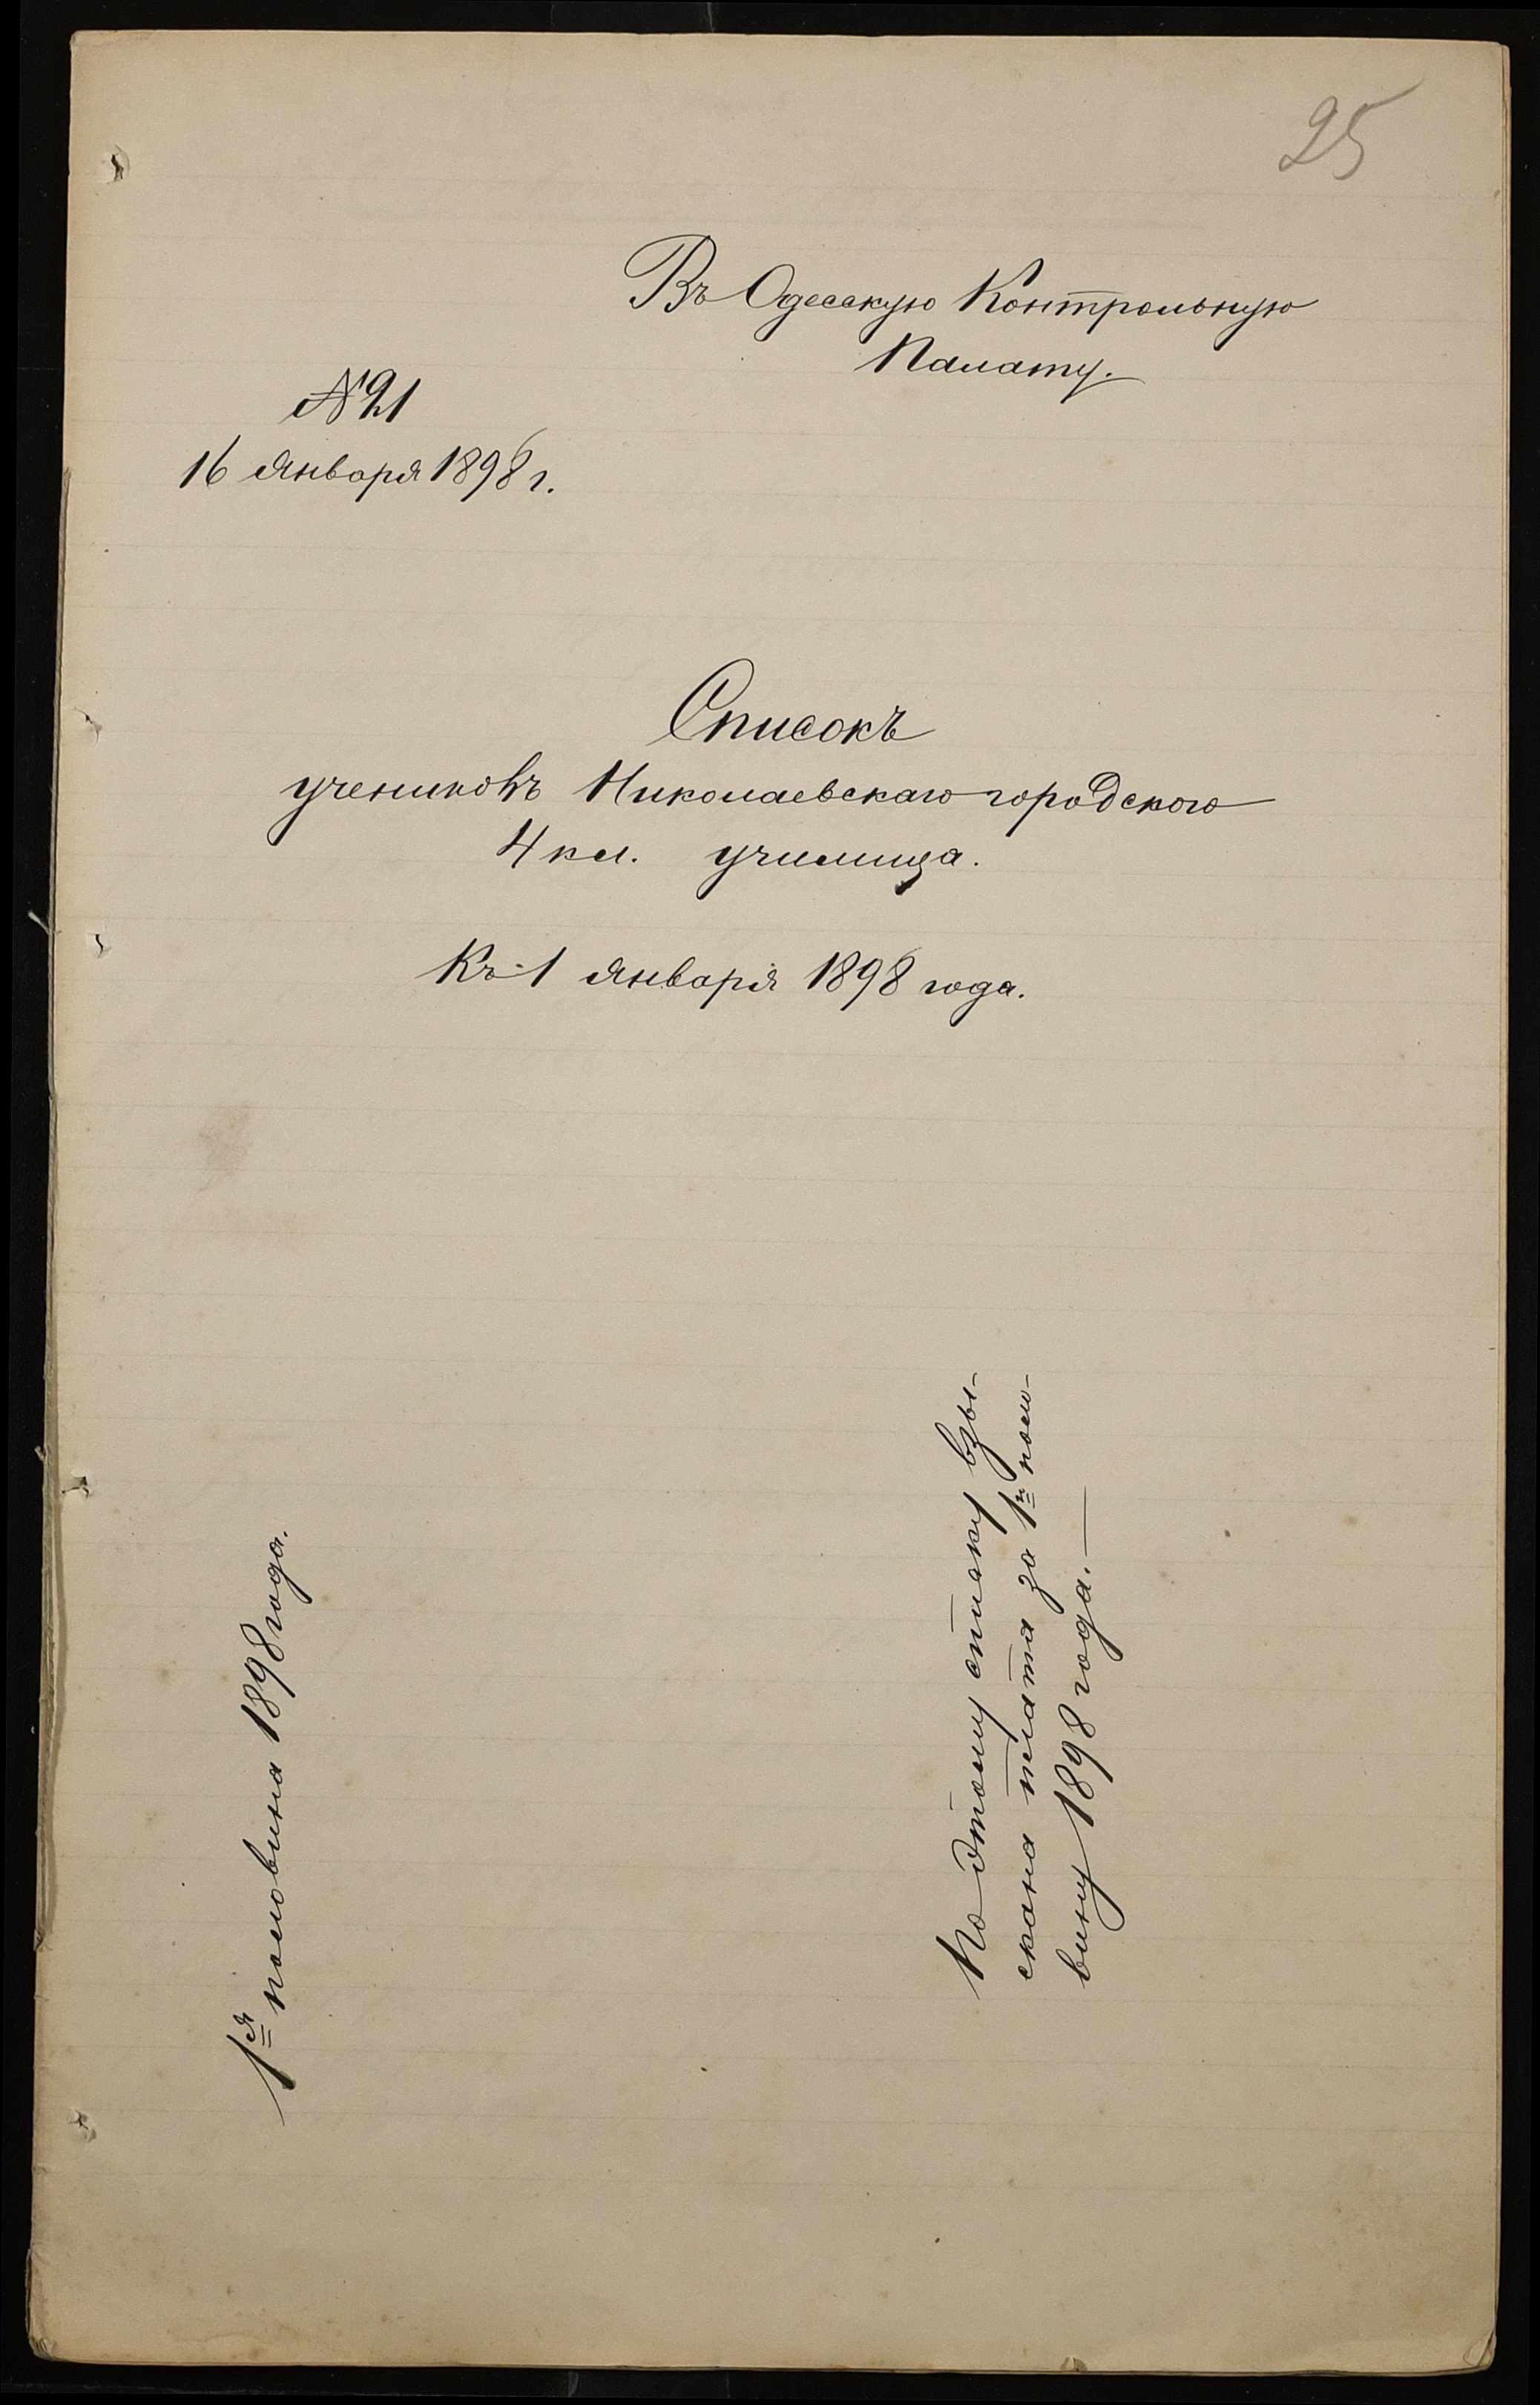 25
Въ Одесскую Контрольную
Палату.
№ 21
16 Января 1898 г.
Списокъ
учениковъ Николаевскаго городского
4 кл. училища.
Къ 1 Января 1898 года.
1я половина 1898 года.
По этому списку взы-
скана плата за 1ю поло-
вину 1898 года.—